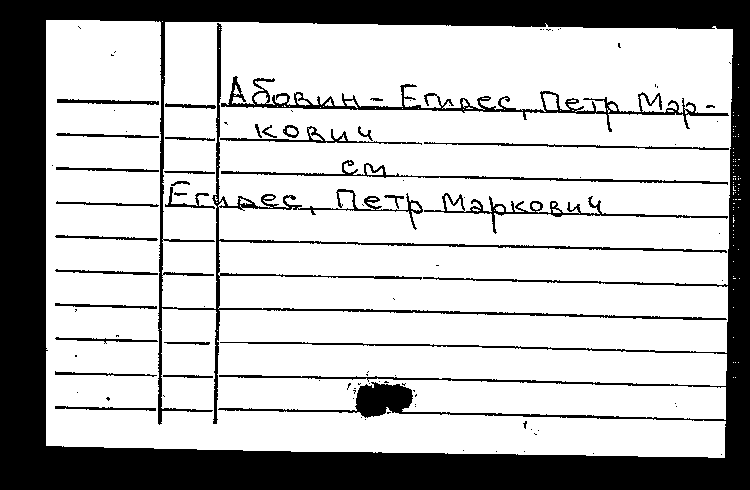 Абовин - Егидес, Петр Мар-
кович
см
Егидес, Петр Маркович